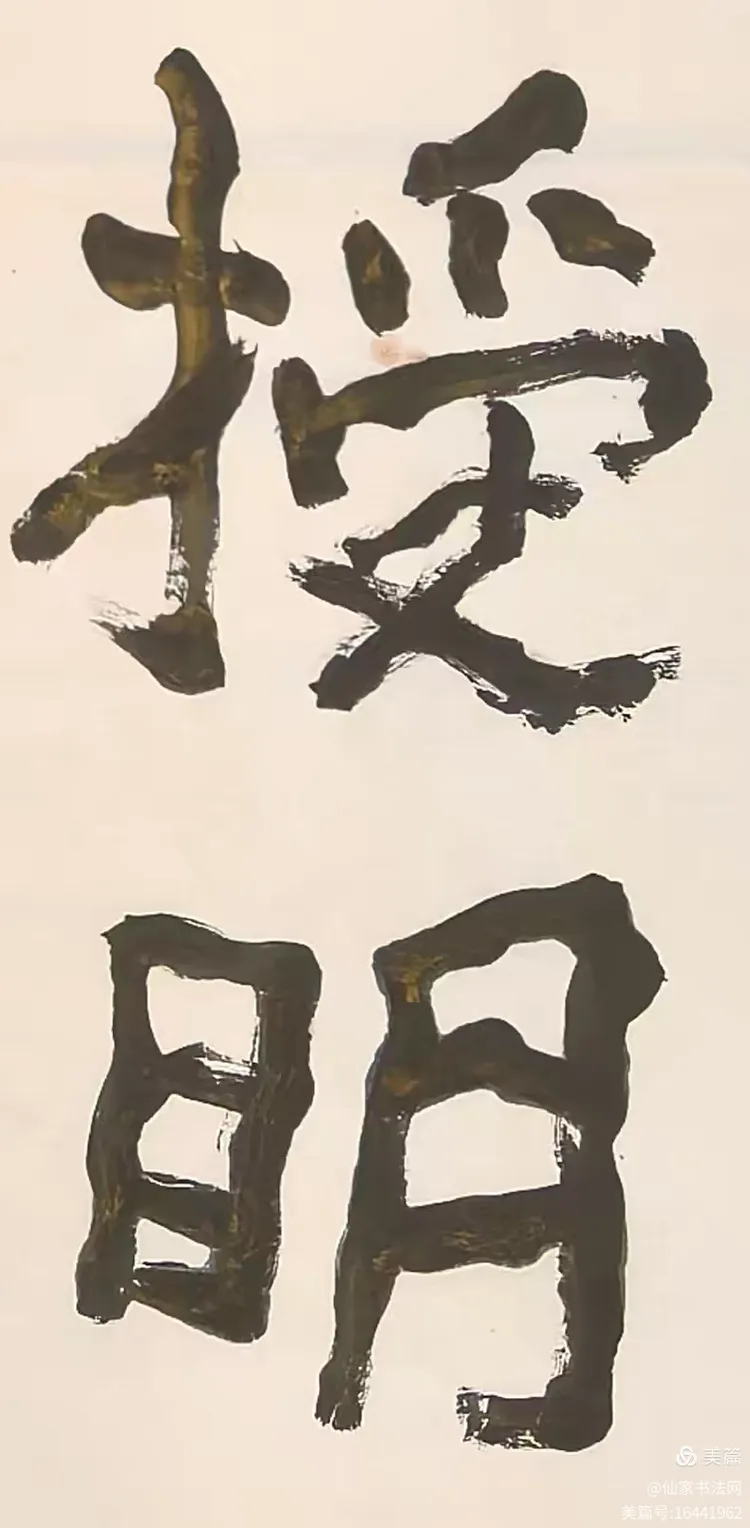 授眀
美篇
@仙家书法网
美篇号:16441962